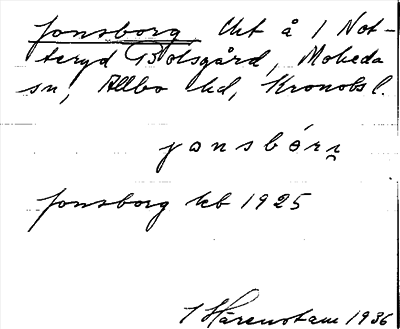 Jonsborg, lht å 1 Not-
teryd Bolsgård, Moheda
sn, Allbo hd, Kronobs l.
jonsbórj
Jonsborg kb 1925
Härenstam 1936